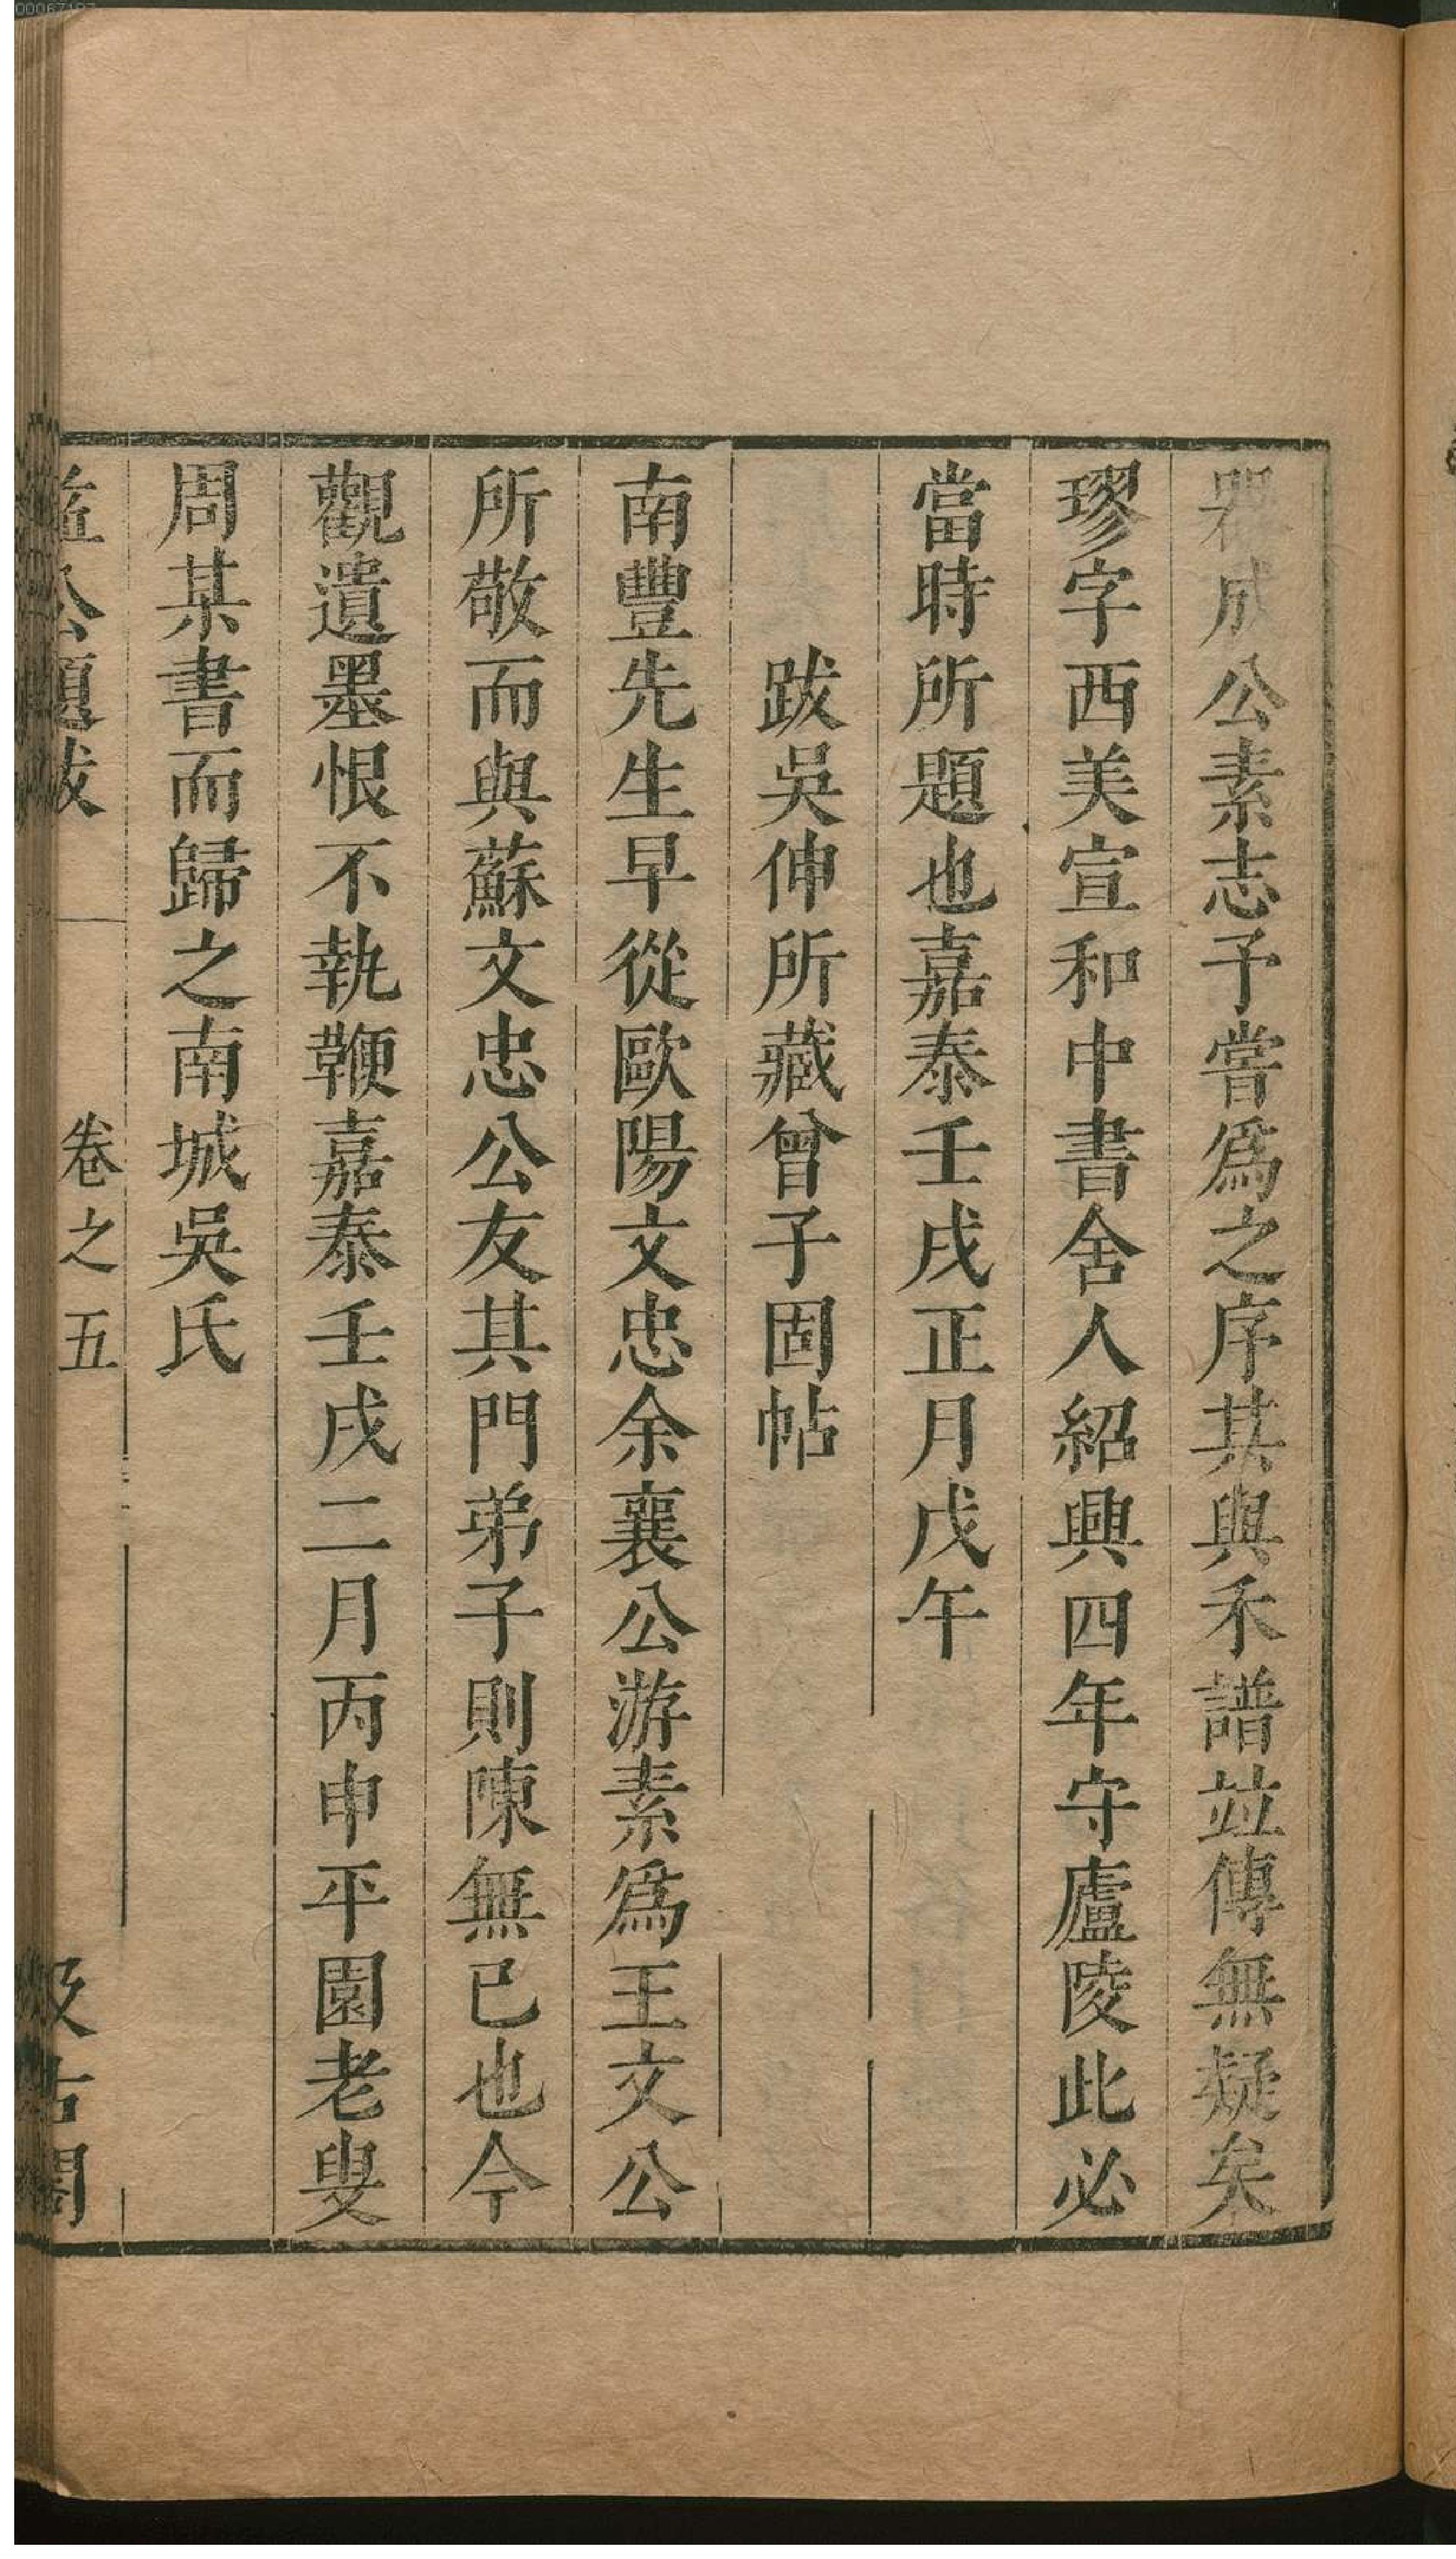 器成公素志予嘗爲之序其與禾譜並傳無疑矣
璆字西美宣和中書舍人紹興四年守廬陵此必
當時所題也嘉泰壬戌正月戊午
跋吳伸所藏曾子固帖
南豐先生早從歐陽文忠余襄公游素爲王文公
所敬而與蘇文忠公友其門弟子則陳無已也今
觀遺墨恨不執鞭嘉泰壬戌二月丙申平園老叟
周某書而歸之南城吳氏
益公題跋 卷之五 汲古閣